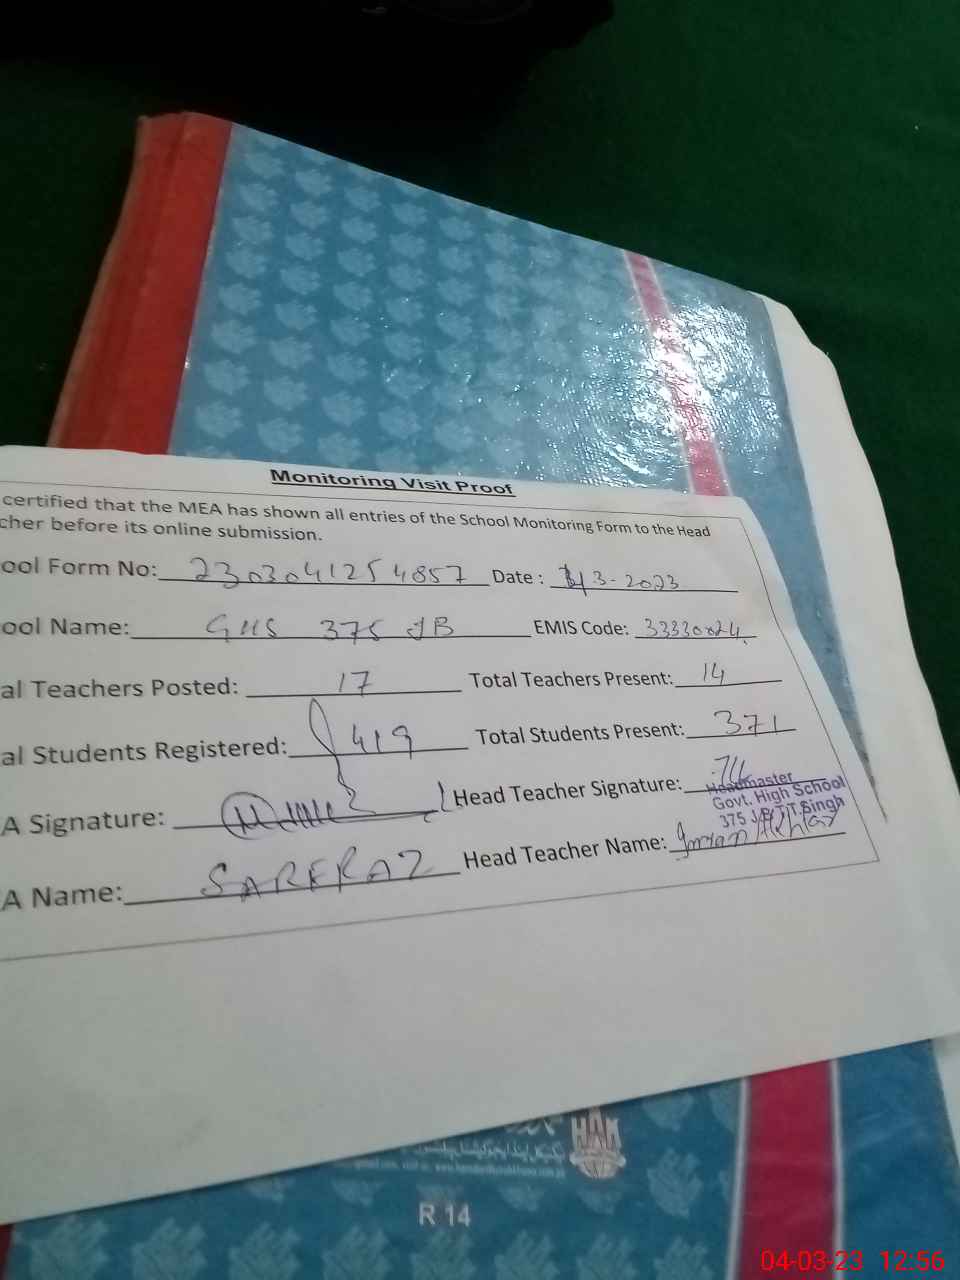 Monitoring Visit Proof
certified that the MEA has shown all entries of the School Monitoring Form to the Head
cher before its online submission.
ool Form No: 2303041254857 Date : 3-2023
ool Name: GHS 375 JB EMIS Code:
al Teachers Posted: 17 Total Teachers Present: 14
al Students Registered: 419 Total Students Present: 371
A Signature: Head Teacher Signature:
Headmaster
Govt. High School
375 J.B T.T.Singh
A Name: SARFRAZ Head Teacher Name:
HAK
R 14
04-03-23 12:56